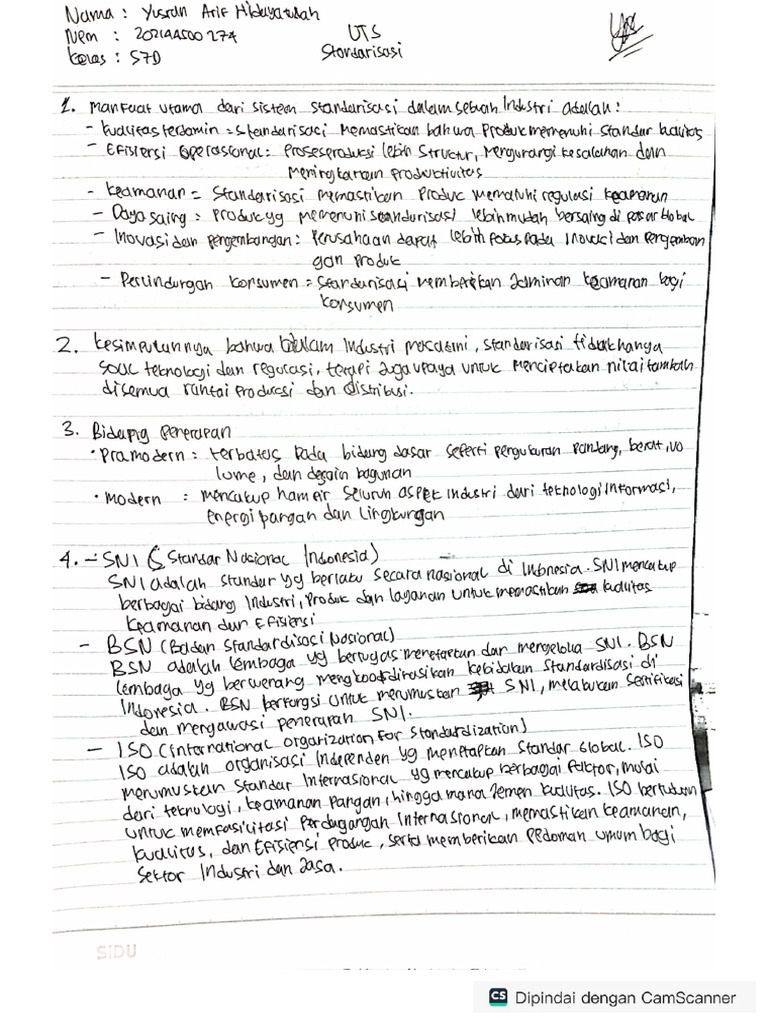 Nama : Yusran Arif Hidayatulah
NPM : 202144500274
UTS
Kelas : S7D
Standarisasi
1. Manfaat utama dari sistem standarisasi dalam sebuah Industri adalah :
- Kualitas terjamin = Standarisasi Memastikan bahwa Produk memenuhi standar kualitas
- Efisiensi Operasional : Proses produksi lebih Struktur, Mengurangi kesalahan dan
Meningkatkan Productivitas
- Keamanan = Standarisasi memastikan Produk Mematuhi regulasi keamanan
- Daya saing = Produk yg memenuhi standarisasi lebih mudah bersaing di pasar Global
- Inovasi dan pengembangan : Perusahaan dapat lebih fokus pada Inovasi dan Pengemban
gan Produk
- Perlindungan konsumen = Standarisasi memberikan Jaminan keamanan bagi
konsumen
2. Kesimpulannya bahwa dalam Industri masa kini, standarisasi tidak hanya
soal teknologi dan regulasi, tetapi Juga upaya untuk Menciptakan nilai tambah
disemua rantai Produksi dan distribusi.
3. Bidang penerapan
• Pramodern : terbatas Pada bidang dasar seperti pengukuran Panjang, berat, vo
lume, dan desain bagunan
• Modern : mencakup hampir seluruh aspek Industri dari teknologi Informasi,
energi pangan dan Lingkungan
4. - SNI ( Standar Nasional Indonesia)
SNI adalah standar yg berlaku secara nasional di Indonesia. SNI mencakup
berbagai bidang Industri, Produk dan layanan untuk memastikan kualitas
keamanan dan Efisiensi
- BSN (Badan Standardisasi Nasional)
BSN adalah lembaga yg bertugas menetapkan dan mengelola SNI. BSN
lembaga yg berwenang mengkoordinasikan kebijakan Standardisasi di
Indonesia. BSN berfungsi untuk merumuskan SNI, melakukan Sertifikasi
dan mengawasi penerapan SNI.
- ISO (International organization For Standardization)
ISO adalah organisasi Independen yg menetapkan Standar Global. ISO
merumuskan Standar Internasional yg mencakup berbagai Faktor, mulai
dari teknologi, keamanan Pangan, hingga manajemen kualitas. ISO bertujuan
untuk memfasilitasi Perdagangan Internasional, memastikan keamanan,
kualitas, dan Efisiensi Produk, serta memberikan Pedoman umum bagi
Sektor Industri dan Jasa.
SIDU
CS Dipindai dengan CamScanner